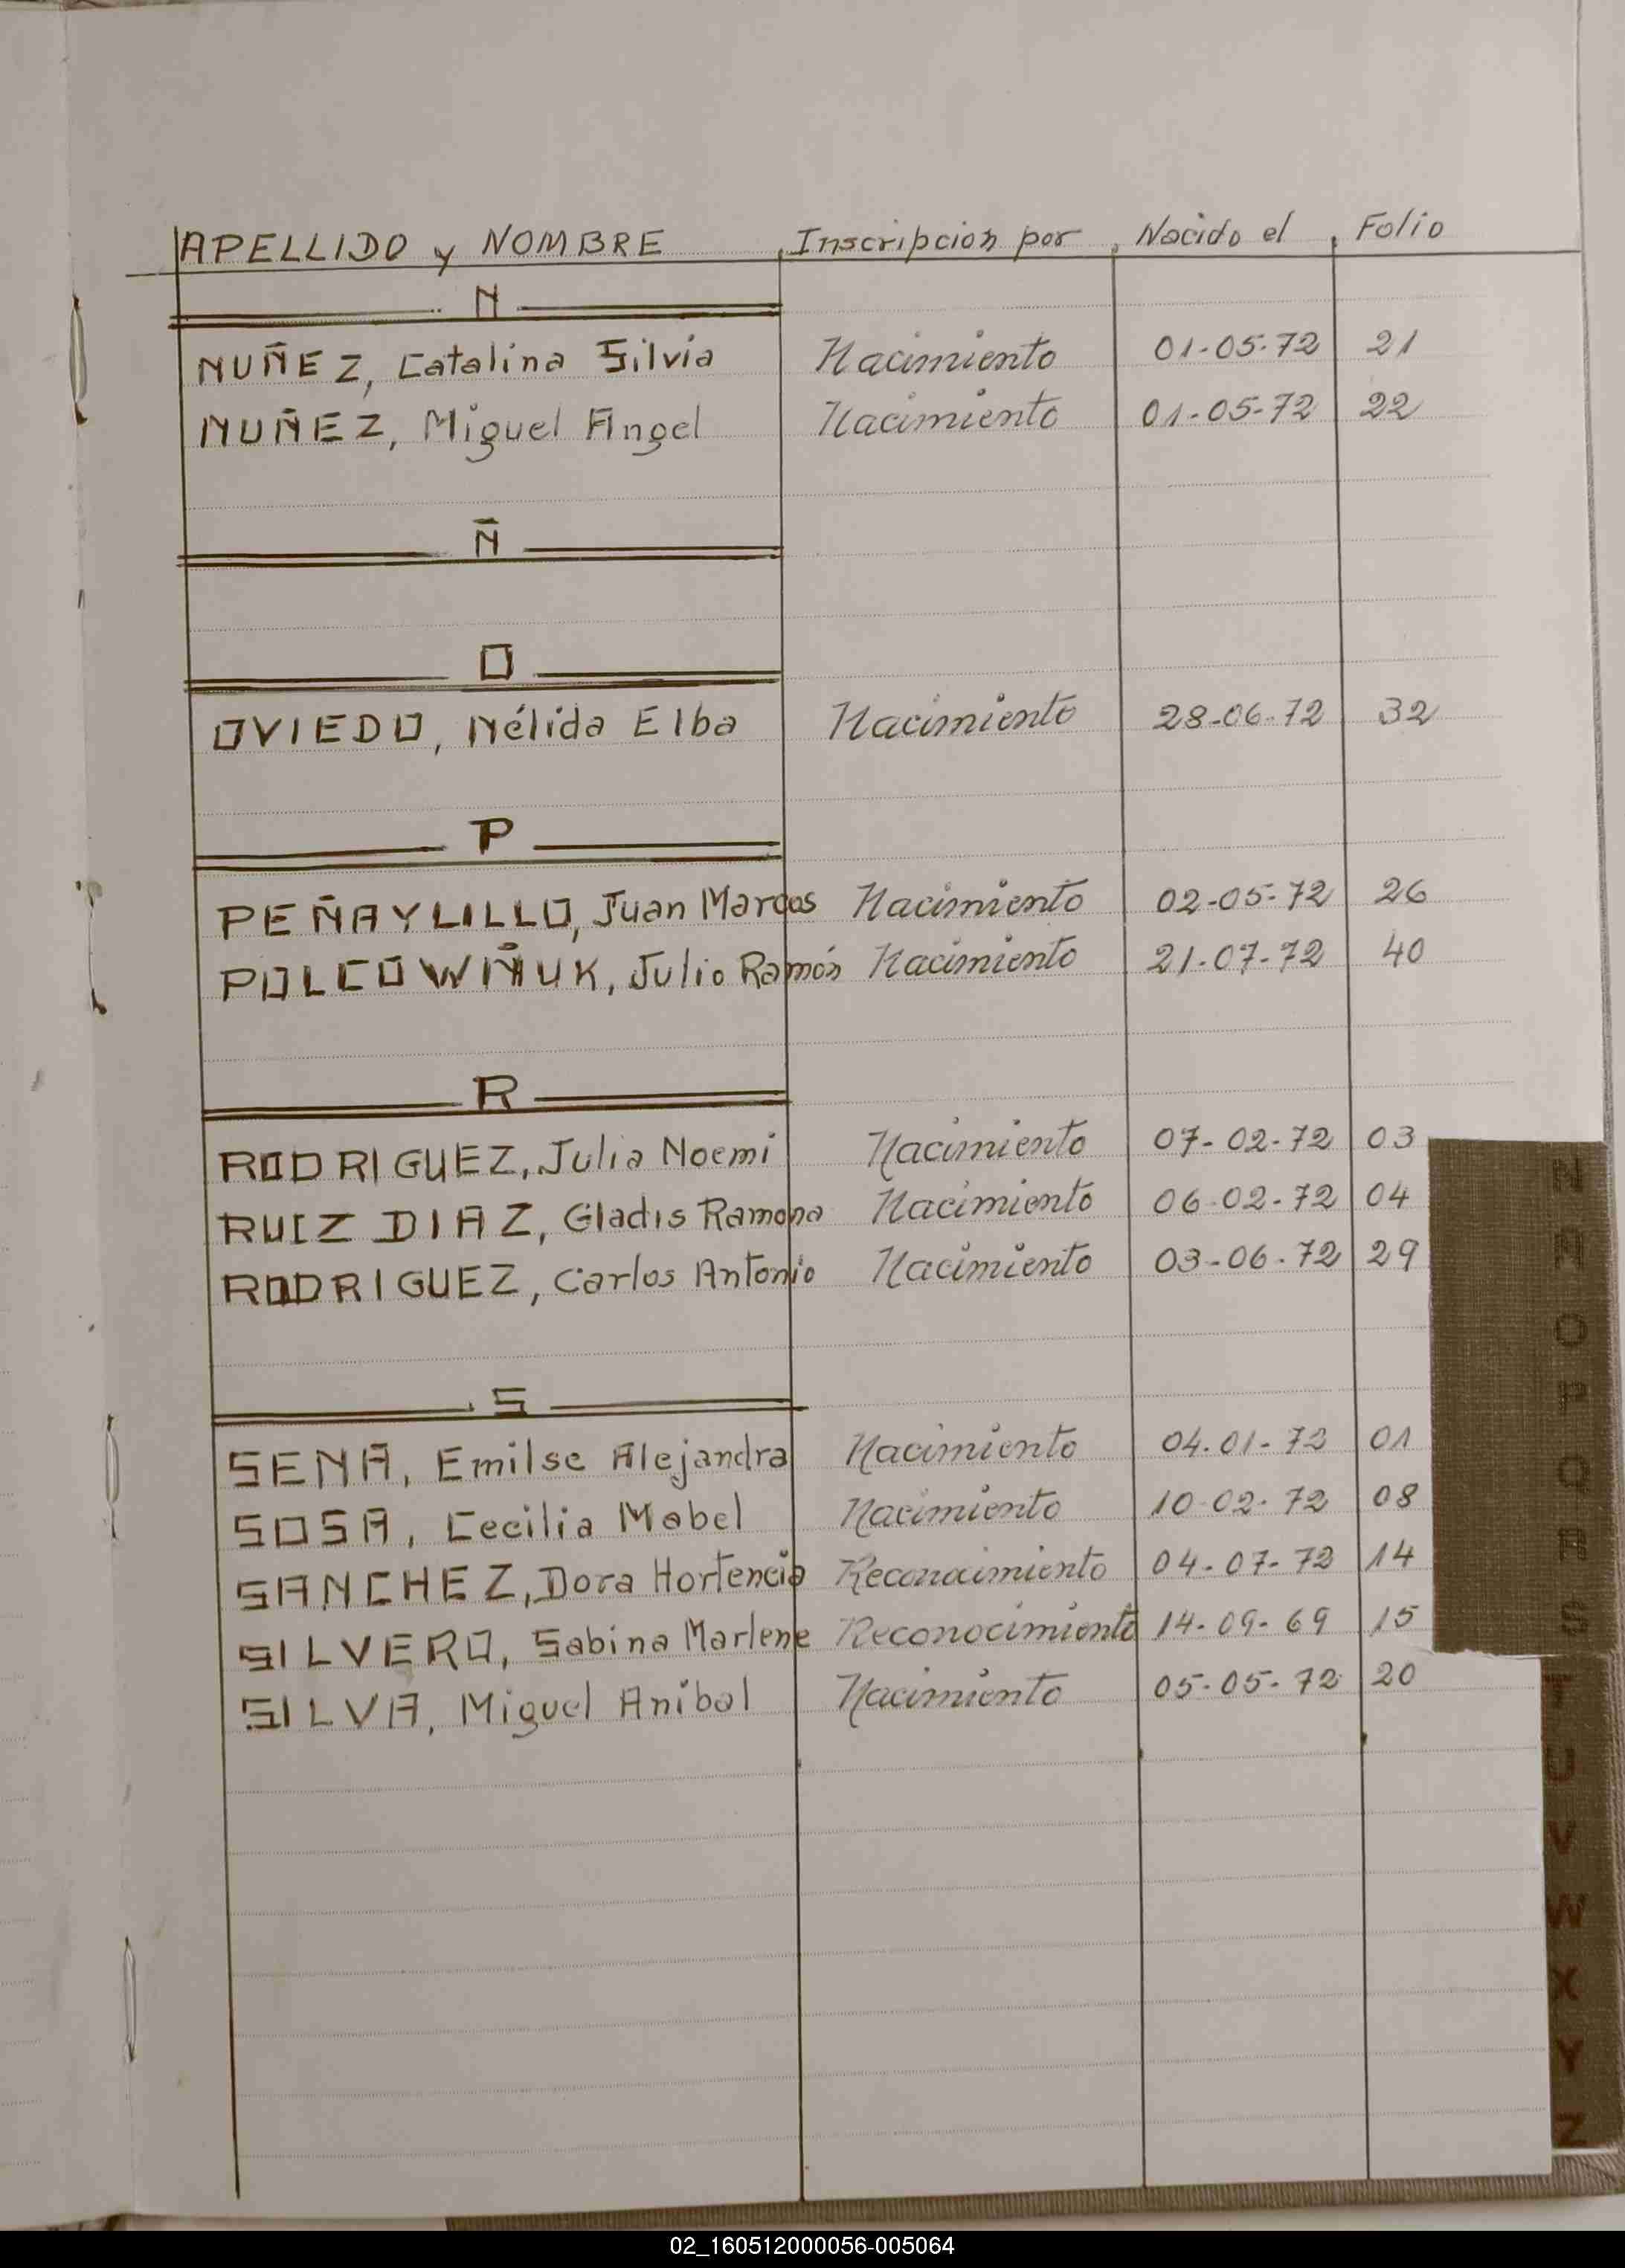 APELLIDO y NOMBRE Inscripcion por Nacido el Folio
N
NUÑEZ, Catalina Silvia Nacimiento 01-05-72 21
NUÑEZ, Miguel Angel Nacimiento 01-05-72 22
Ñ
O
OVIEDO, Nélida Elba Nacimiento 28-06-72 32
P
PEÑAYLILLO, Juan Marcos Nacimiento 02-05-72 26
POLCOWÑUK, Julio Ramón Nacimiento 21-07-72 40
R
RODRIGUEZ, Julia Noemi Nacimiento 07-02-72 03
RUIZ DIAZ, Gladis Ramona Nacimiento 06-02-72 04
RODRIGUEZ, Carlos Antonio Nacimiento 03-06-72 29
S
SENA, Emilse Alejandra Nacimiento 04-01-72 01
SOSA, Cecilia Mabel Nacimiento 10-02-72 08
SANCHEZ, Dora Hortencia Reconocimiento 04-07-72 14
SILVERO, Sabina Marlene Reconocimiento 14-09-69 15
SILVA, Miguel Anibal Nacimiento 05-05-72 20
N
Ñ
O
P
Q
R
S
T
U
V
W
X
Y
Z
02_160512000056-005064